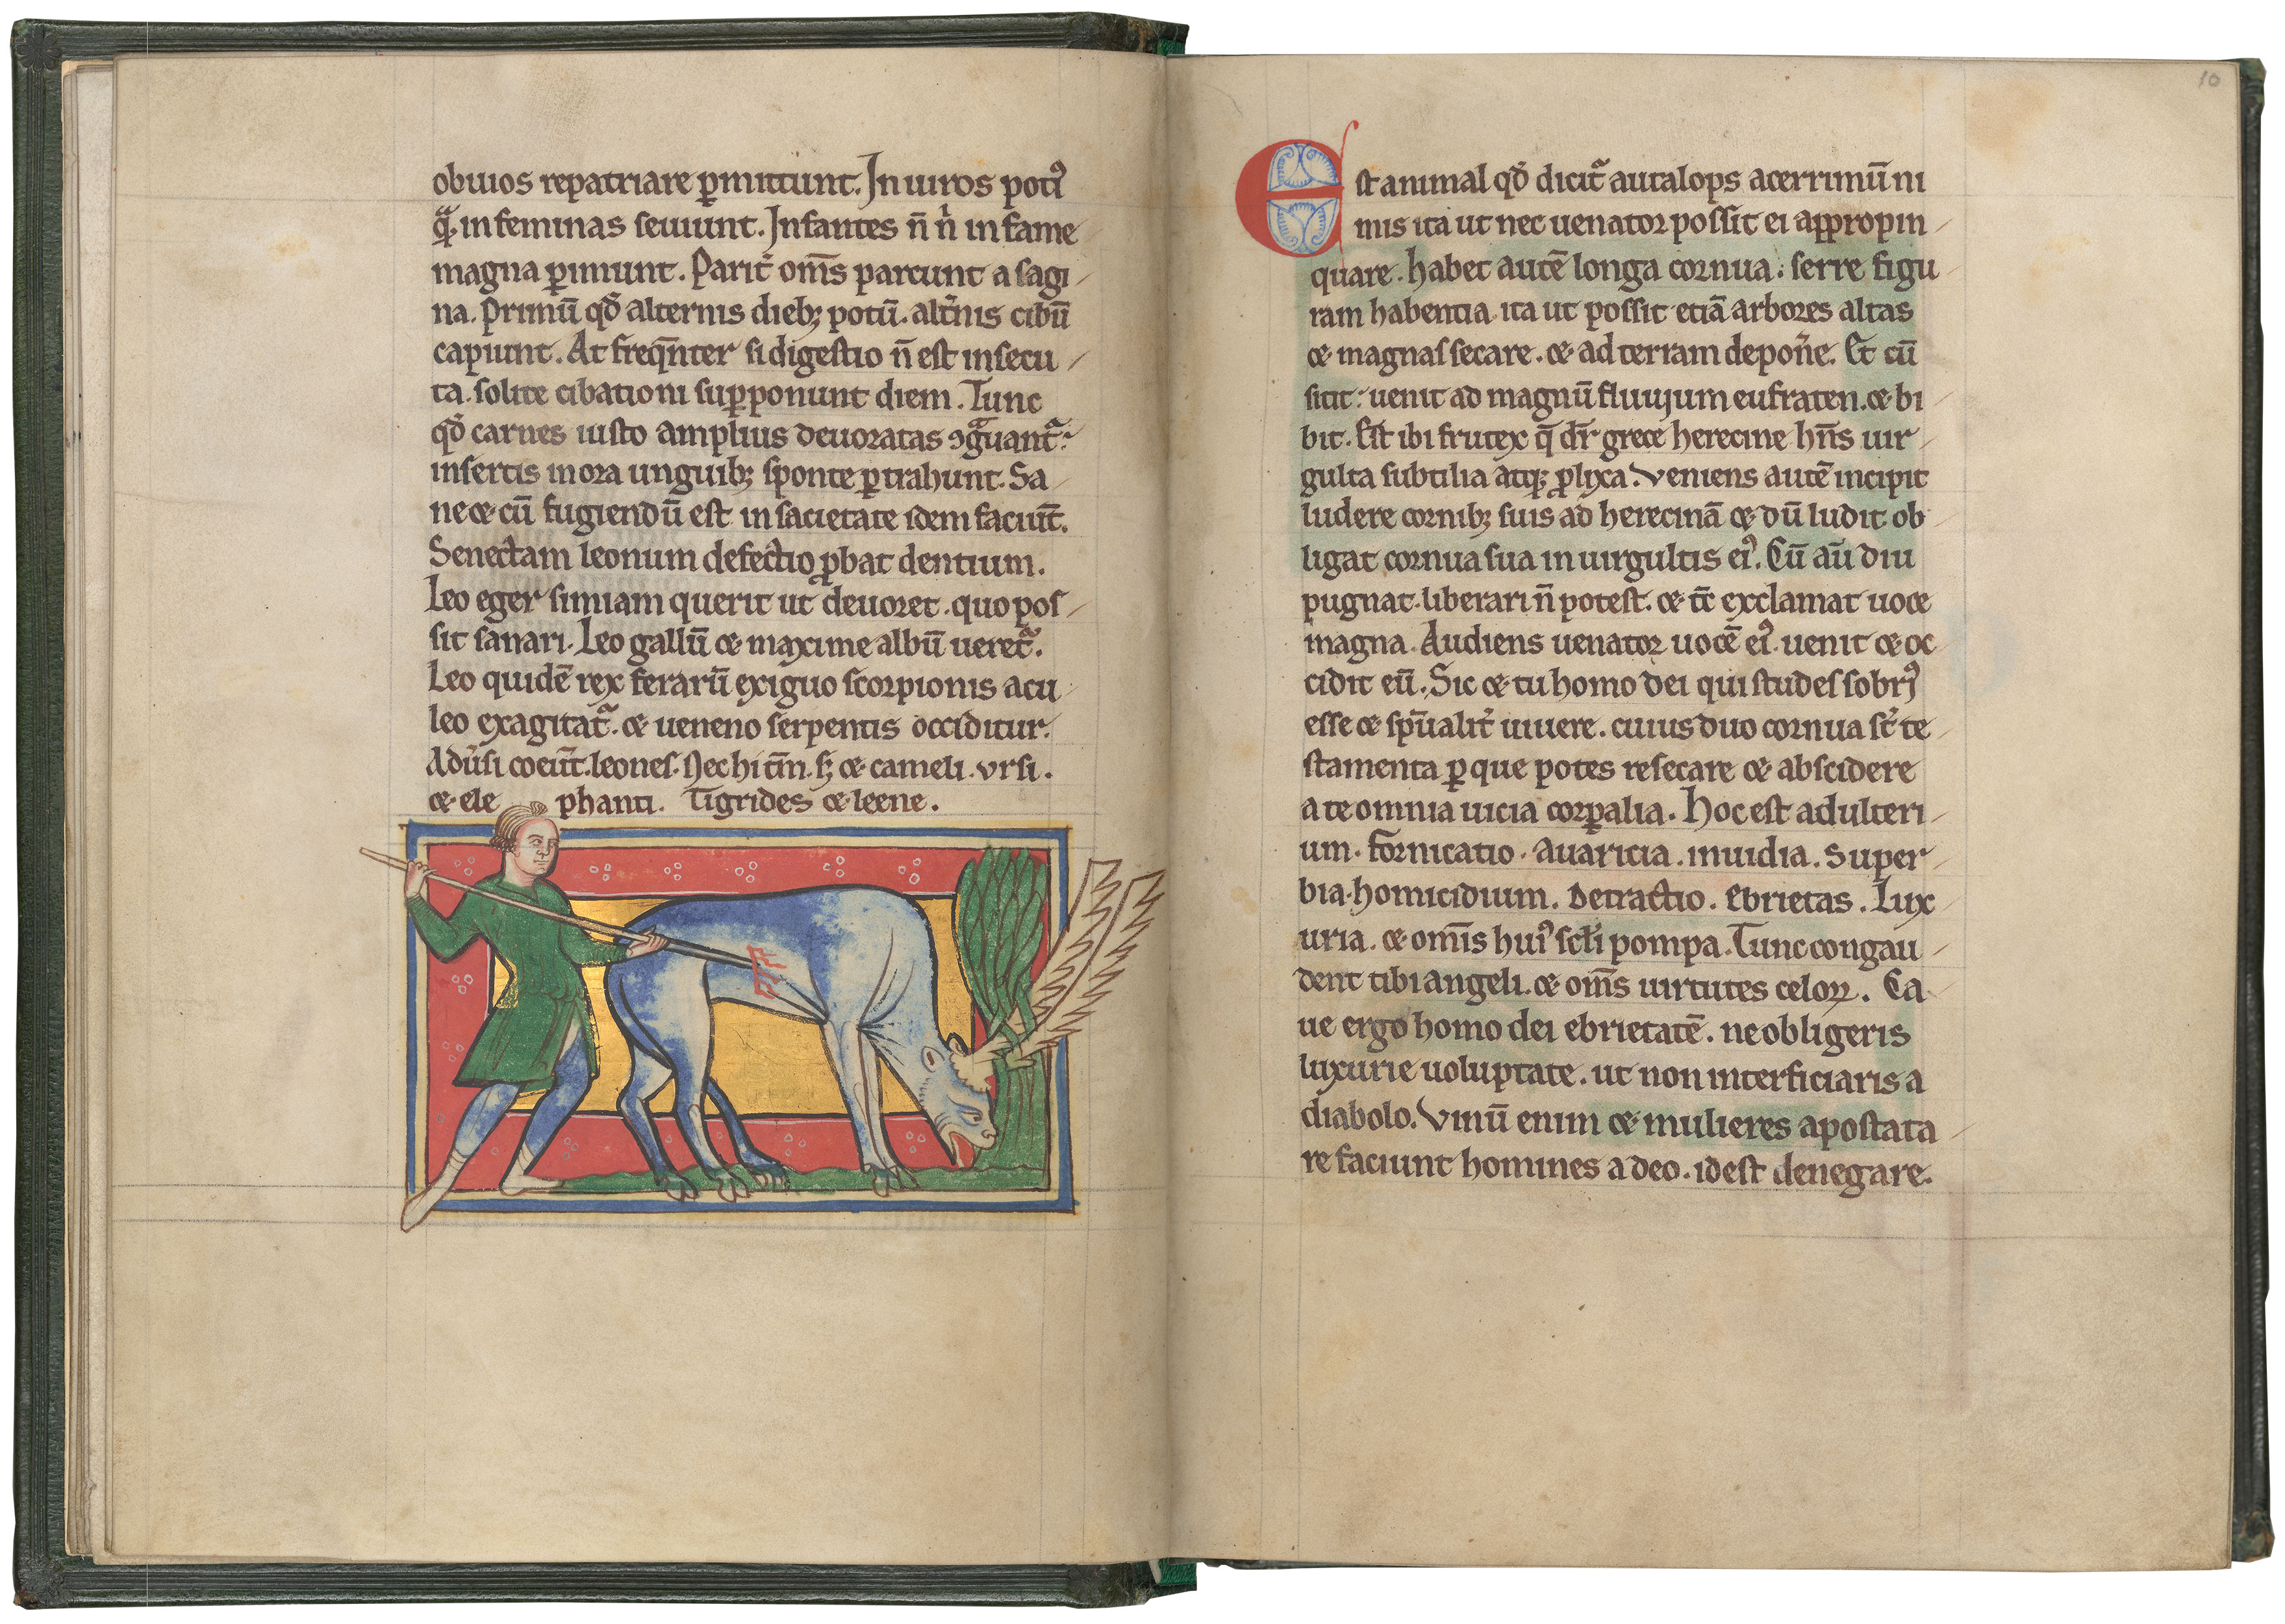 obuios repatriare ꝑmittunt. In uiros potiꝰ
qͣ in feminas seuiunt. Infantes n̄ nͥ in fame
magna ꝑimunt. Parit᷑ om̄s parcunt a sagi
na. Primū qd̓ alternis dieb; potū. alt᷑nis cibū
capiunt. At freq̄nter si digestio n̄ est insecu
ta. solite cibationi suꝑponunt diem. Tunc
qd̓ carnes iusto amplius deuoratas ꝯgͣuantᷓ.
insertis in ora unguib; sponte ꝑtrahunt. Sa
ne ⁊ cū fugiendū est in sacietate idem faciūt.
Senectam leonum defectio ꝓbat dentium.
Leo eger simiam querit ut deuoret. quo pos
sit sanari. Leo gallū ⁊ maxime albū ueretᷓ.
Leo quidē rex ferarū exiguo scorpionis acu
leo exagitatᷓ. ⁊ ueneno serpentis occiditur.
Adu᷑si coeūt leones. Nec hi tm̄. s; ⁊ cameli. ursi.
⁊ ele phanti. Tigrides ⁊ leene.
10
Est animal qd̓ dicitᷓ autalops acerrimū ni
mis ita ut nec uenator possit ei appropin
quare. habet autē longa cornua. serre figu
ram habentia ita ut possit etiā arbores altas
⁊ magnas secare. ⁊ ad terram depon᷑e. Et cū
sitit. uenit ad magnū fluuium eufraten. ⁊ bi
bit. Est ibi frutex q̄ dr̄ grece herecine hn̄s uir
gulta subtilia atq; ꝓlixa. Veniens autē incipit
ludere cornib; suis ad herecinā ⁊ dū ludit ob
ligat cornua sua in uirgultis eiꝰ. Cū aū diu
pugnat. liberari n̄ potest. ⁊ tc̄ exclamat uoce
magna. Audiens uenator uocē eiꝰ uenit ⁊ oc
cidit eū. Sic ⁊ tu homo dei qui studes sobriꝰ
esse ⁊ sp̄ualit᷑ uiuere. cuius duo cornua st᷑ te
stamenta ꝑ que potes resecare ⁊ abscidere
a te omnia uicia corꝑalia. Hoc est adulteri
um. fornicatio. auaricia. inuidia. super
bia. homicidium. detractio. ebrietas. Lux
uria. ⁊ om̄is huiꝰ scl̄i pompa. Tunc congau
dent tibi angeli. ⁊ om̄s uirtutes celoꝝ. Ca
ue ergo homo dei ebrietatē. ne obligeris
luxurie uoluptate. ut non interficiaris a
diabolo. Vinū enim ⁊ mulieres apostata
re faciunt homines a deo. id est denegare.